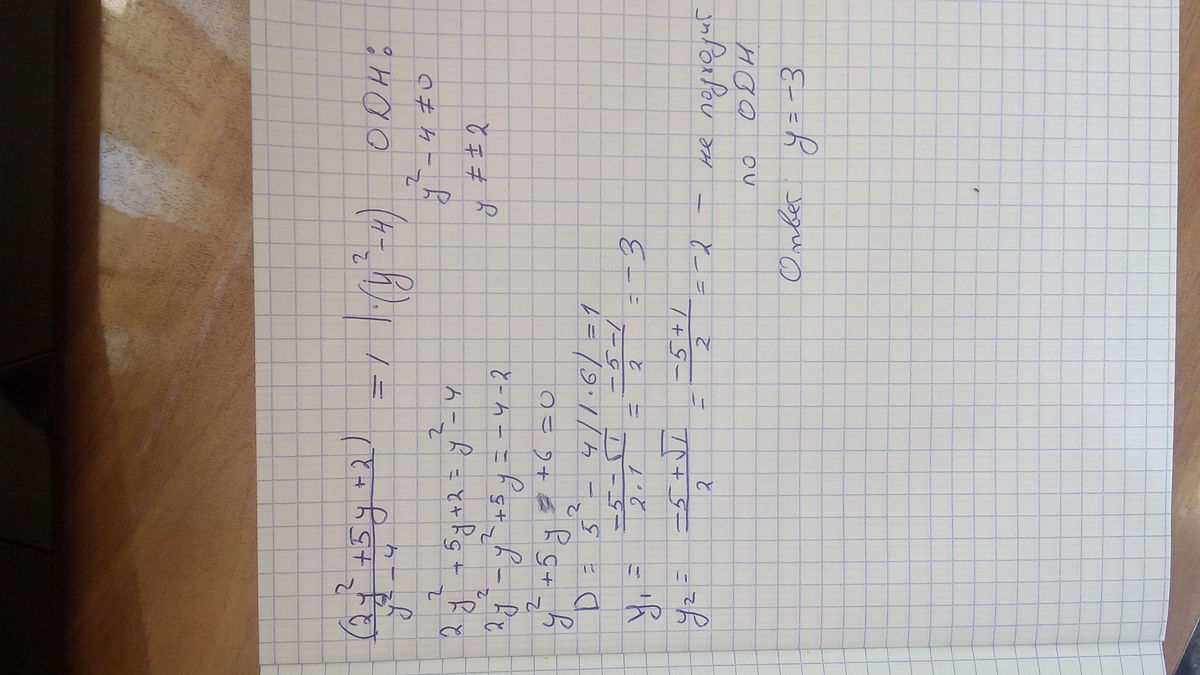 (2y² + 5y + 2) / y² - 4 = 1 | · (y² - 4)
ODH:
y² - 4 ≠ 0
y ≠ ±2
2y² + 5y + 2 = y² - 4
2y² - y² + 5y = -4 - 2
y² + 5y + 6 = 0
D = 5² - 4(1·6) = 1
y₁ = (-5 - √1) / 2·1 = (-5 - 1) / 2 = -3
y₂ = (-5 + √1) / 2 = (-5 + 1) / 2 = -2 - не подходит
по ODH
Ответ: y = -3